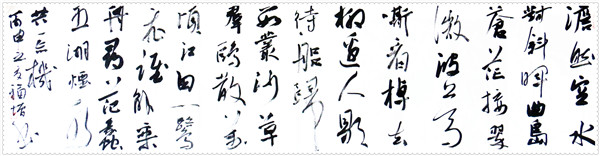 澹然空水
對斜暉曲島
蒼茫接翠
微波上馬
嘶看棹去
柳邊人歇
待船歸
數叢沙草
羣鷗散萬
頃江田一鷺
飛誰解乘
舟尋范蠡
五湖煙水
獨忘機
丙申